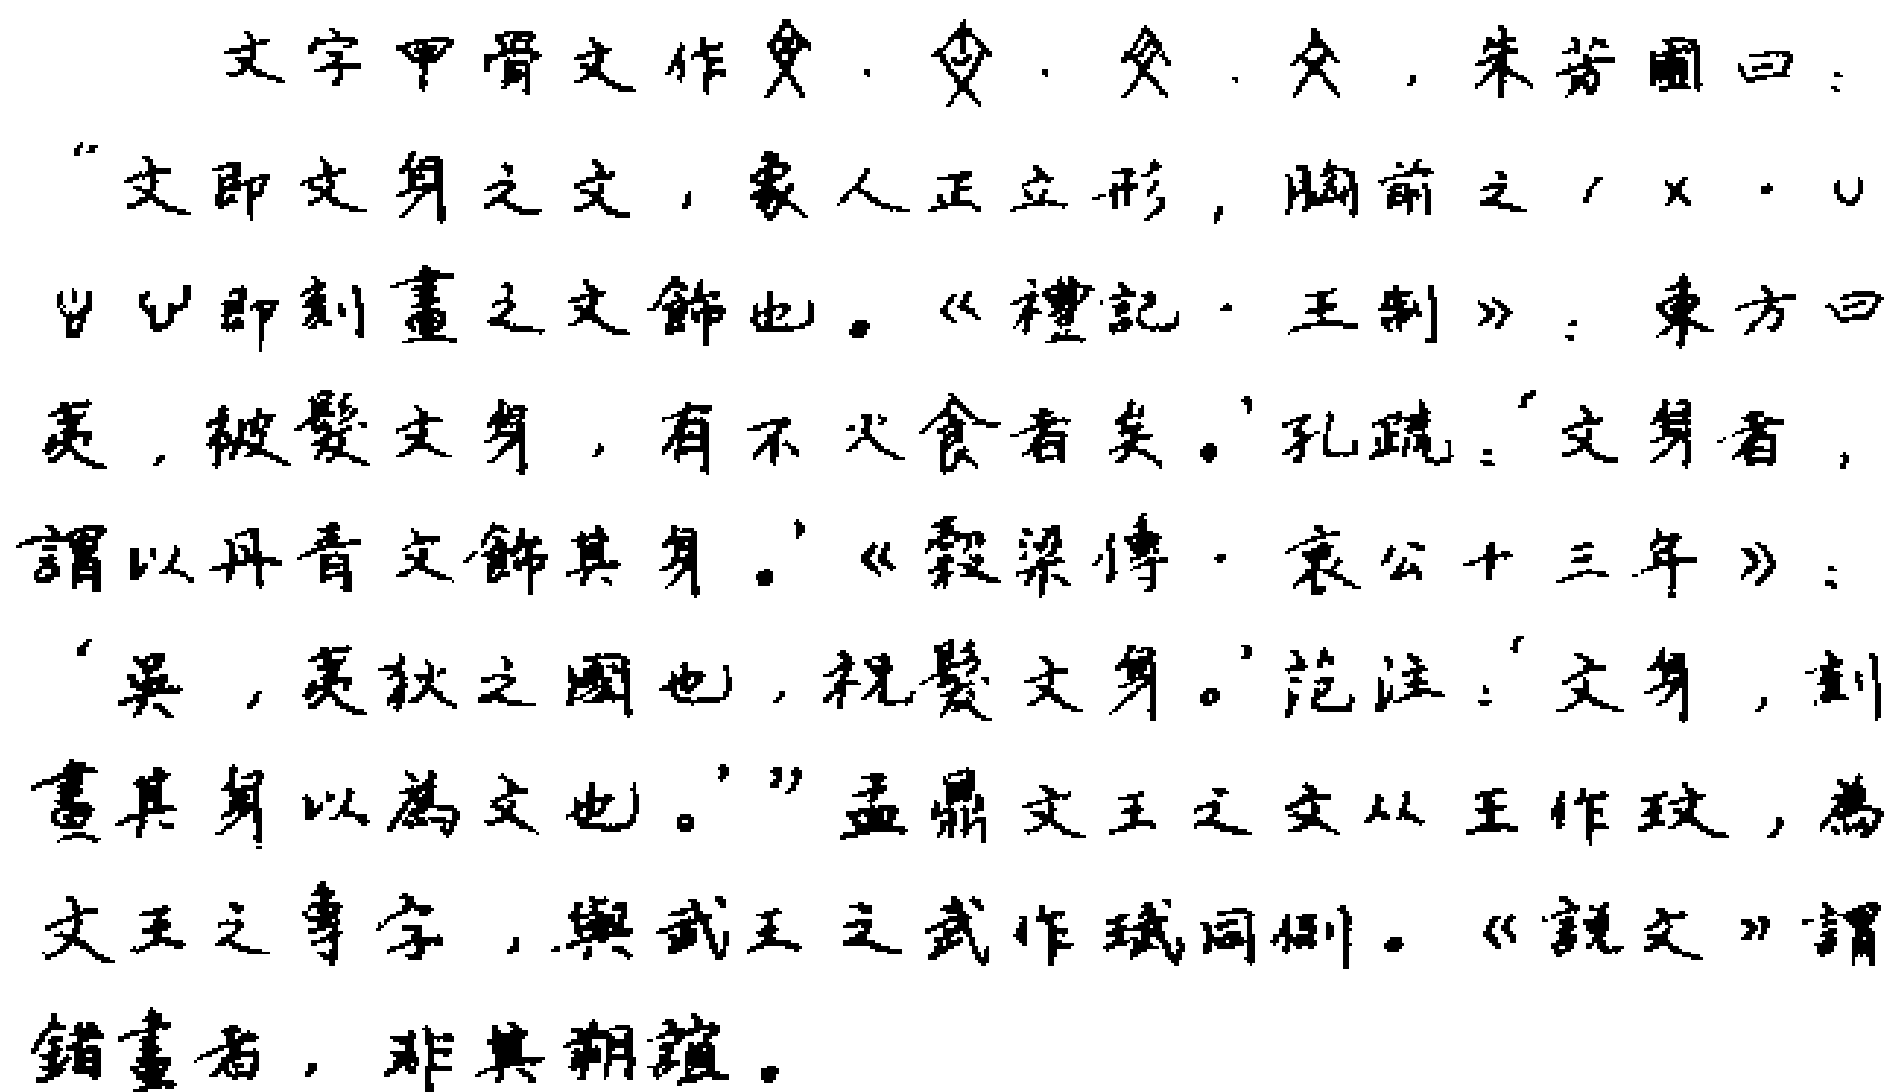 文字甲骨文作 . . . ，朱芳圃曰：
“文即文身之文，象人正立形，胸前之/ x · ∪
即刻畫之文飾也。《禮記·王制》：東方曰
夷，被髮文身，有不火食者矣。’孔疏：‘文身者，
謂以丹青文飾其身。’《穀梁傳·哀公十三年》：
‘吳，夷狄之國也，祝髮文身。’范注：‘文身，刻
畫其身以爲文也。’”盂鼎文王之文从王作玟，爲
文王之專字，與武王之武作珷同例。《說文》謂
錯畫者，非其朔誼。